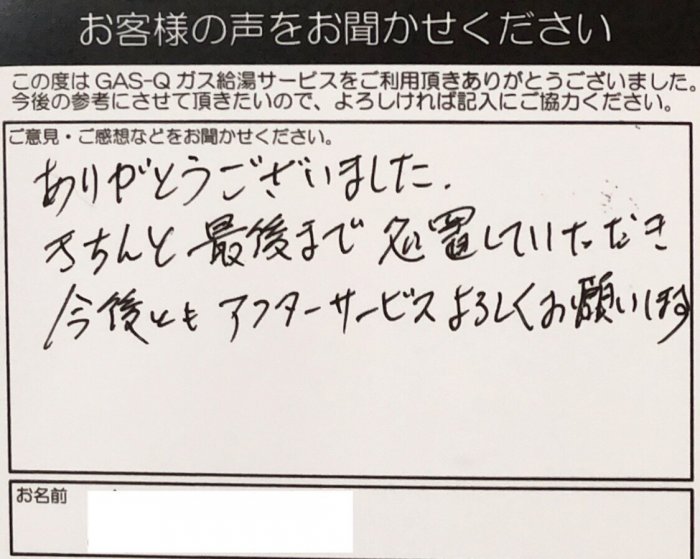 お客様の声をお聞かせください
この度はGAS-Qガス給湯サービスをご利用頂きありがとうございました。
今後の参考にさせて頂きたいので、よろしければ記入にご協力ください。
ご意見・ご感想などをお聞かせください。
ありがとうございました.
きちんと最後まで処置していただき
今後ともアフターサービスよろしくお願いします
お名前